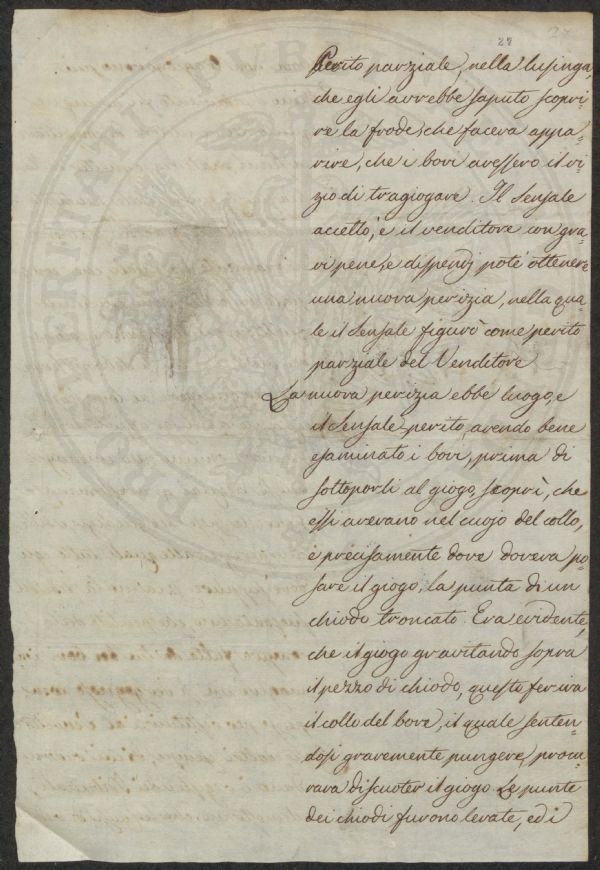 27
Perito parziale, nella lusinga,
che egli avrebbe saputo scopri-
re la frode, che faceva appa-
rire, che i bovi avessero il vi-
zio di tragiogare. Il Sensale
accettò, e il venditore con gra-
vi pene, e dispendj poté ottenere
una nuova perizia, nella qua-
le il Sensale figurò come perito
parziale del Venditore
La nuova perizia ebbe luogo, e
il Sensale perito, avendo bene
esaminato i bovi, prima di
sottoporli al giogo, scoprì, che
essi avevano nel cuojo del collo,
e precisamente dove doveva po-
sare il giogo, la punta di un
chiodo troncato. Era evidente,
che il giogo gravitando sopra
il pezzo di chiodo, questo feriva
il collo del bove, il quale senten-
dosi gravemente pungere, procu-
rava di scuoter il giogo. Le punte
dei chiodi furono levate, ed i